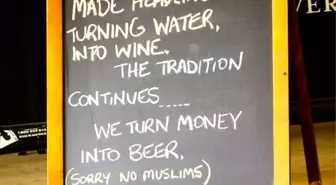 MADE HEADLINES
TURNING WATER,
INTO WINE.
THE TRADITION
CONTINUES.....
WE TURN MONEY
INTO BEER.
(SORRY NO MUSLIMS)